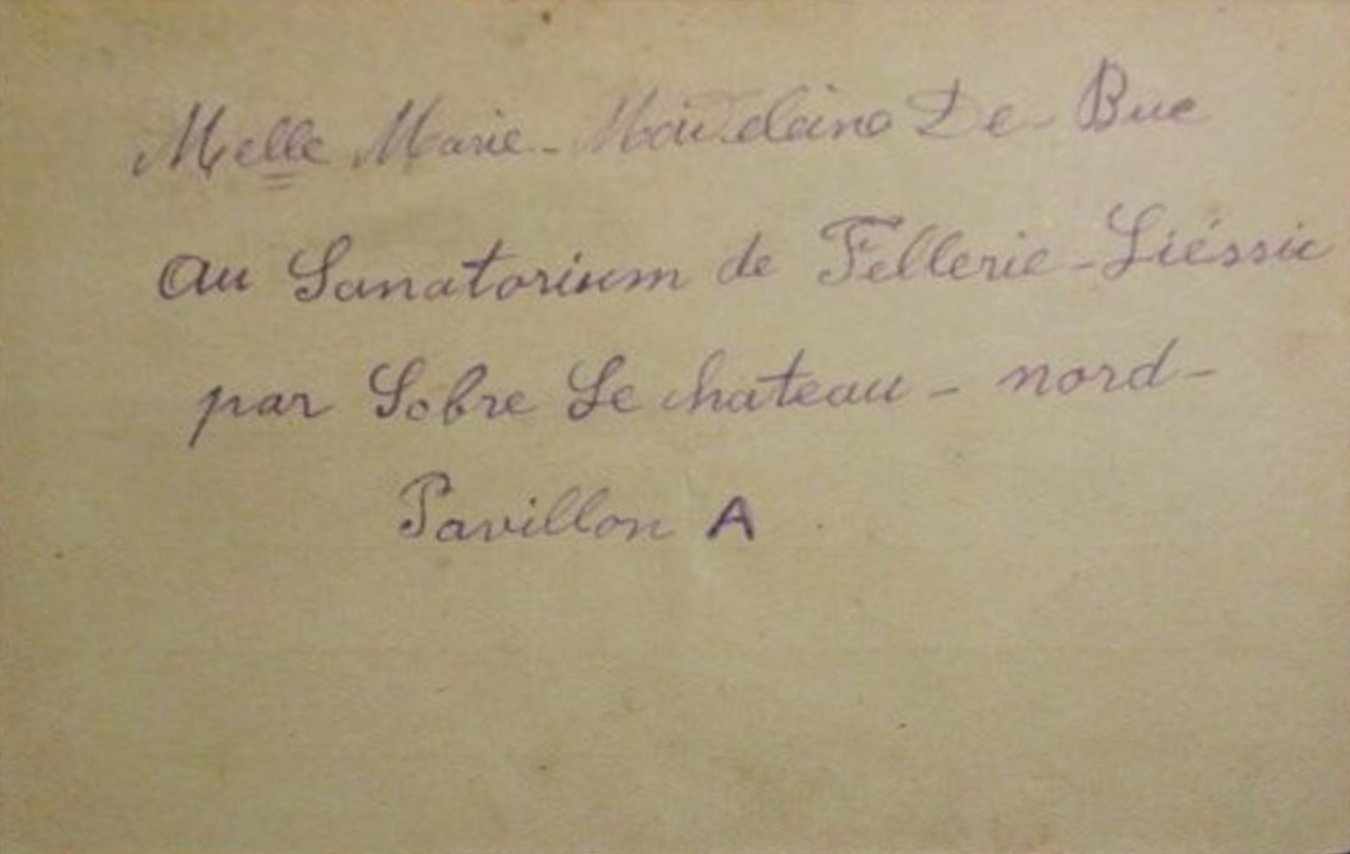 Melle Marie-Madeleine De-Bue
au Sanatorium de Fellerie-Liéssie
par Solre Le chateau - nord -
Pavillon A